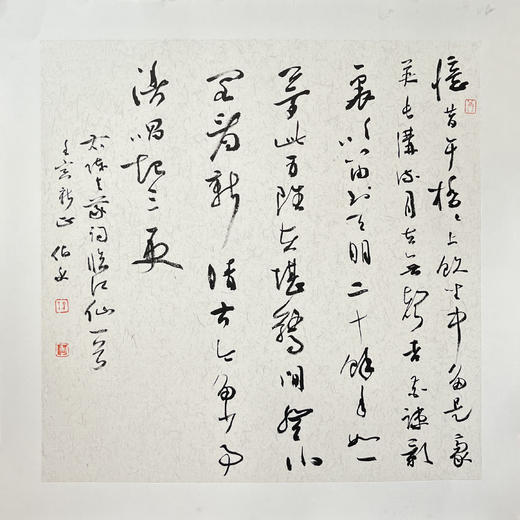 憶昔午橋々上飲坐中多是豪
英長溝流月去無聲杏花疎影
裏吹笛到天明二十餘年如一
夢此身雖在堪驚閒登小
閣看新晴古今多少事
漁唱起三更
右陳與義詞臨江仙一首
新正